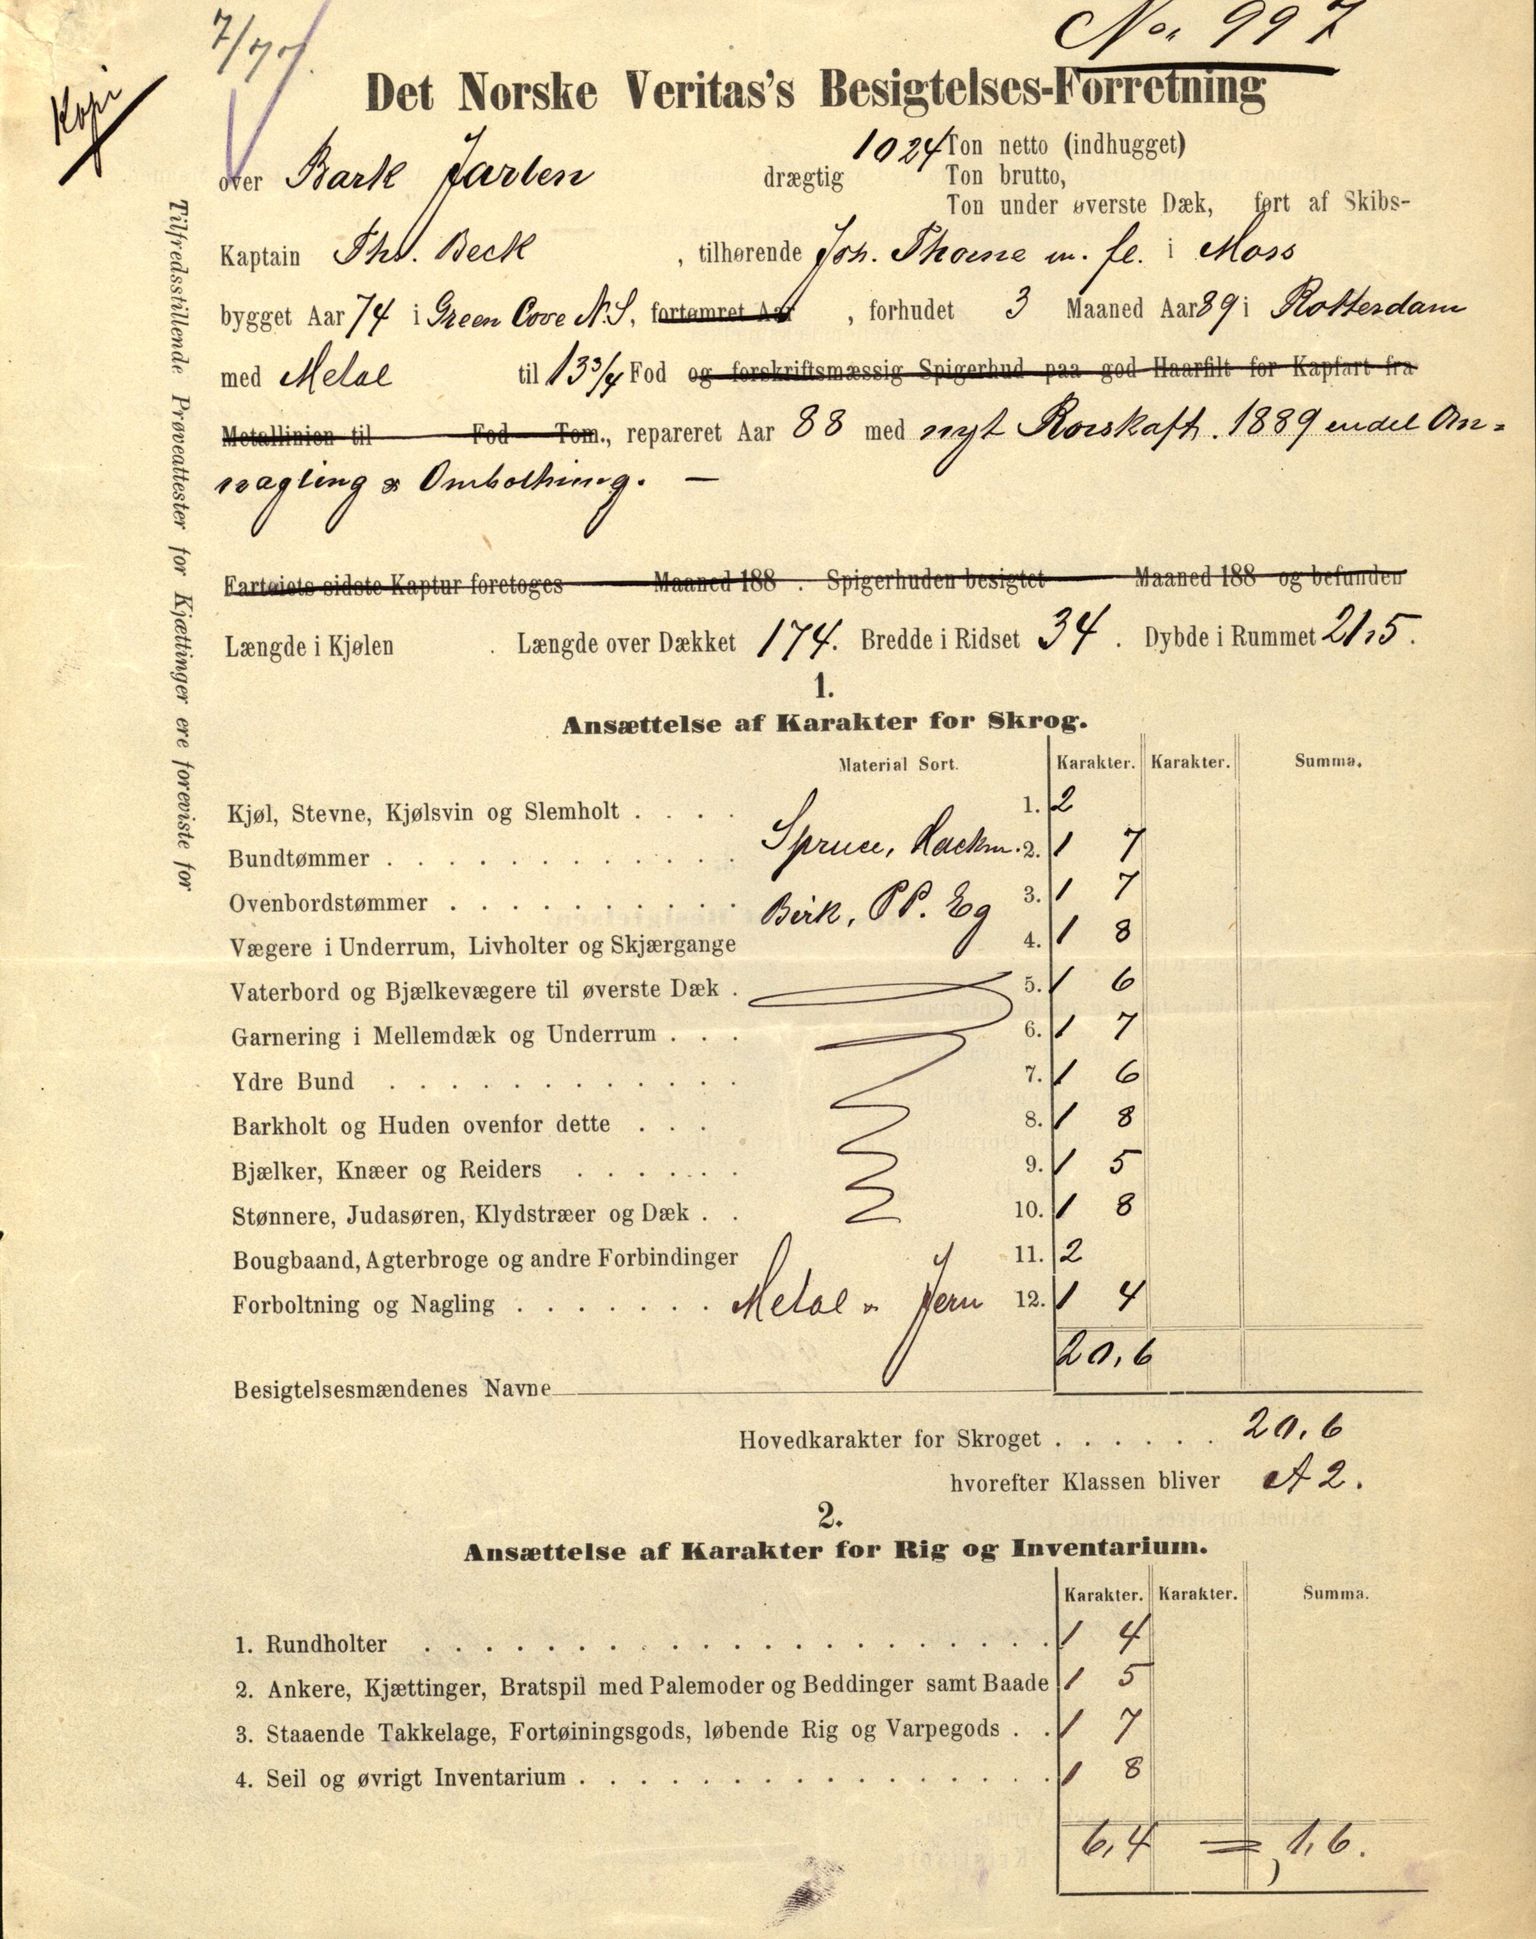 7/77.
No. 997
Kopi
Det Norske Veritas's Besigtelses-Forretning
over Bark Jarlen drægtig 1024 Ton netto (indhugget)
Ton brutto,
Ton under øverste Dæk, ført af Skibs-
Kaptain Th. Beck , tilhørende Joh. Thorne m. fl. i Moss
bygget Aar 74 i Green Cove N.S, fortømret Aar , forhudet 3 Maaned Aar 89 i Rotterdam
med Metal til 13 3/4 Fod og forskriftsmæssig Spigerhud paa god Haarfilt for Kapfart fra
Metallinien til Fod Tom., repareret Aar 88 med nyt Rorskaft. 1889 endel Om=
nagling & Omboltning. —
Fartøiets sidste Kaptur foretoges Maaned 188 . Spigerhuden besigtet Maaned 188 og befunden
Længde i Kjølen . Længde over Dækket 174. Bredde i Ridset 34 . Dybde i Rummet 21,5.
Tilfredsstillende Prøveattester for Kjættinger ere foreviste for
1.
Ansættelse af Karakter for Skrog.
Material Sort. Karakter. Karakter. Summa.
Kjøl, Stevne, Kjølsvin og Slemholt . . . . 1. 2
Bundtømmer . . . . . . . . . . . . Spruce, Hackm. 2. 1 7
Ovenbordstømmer . . . . . . . . . . 3. 1 7
Birk, PP. Eg
Vægere i Underrum, Livholter og Skjærgange 4. 1 8
Vaterbord og Bjælkevægere til øverste Dæk . 5. 1 6
Garnering i Mellemdæk og Underrum . . . 6. 1 7
Ydre Bund . . . . . . . . . . . . 7. 1 6
Barkholt og Huden ovenfor dette . . . 8. 1 8
Bjælker, Knæer og Reiders . . . . . . 9. 1 5
Stønnere, Judasøren, Klydstræer og Dæk . . 10. 1 8
Bougbaand, Agterbroge og andre Forbindinger 11. 2
Forboltning og Nagling . . . . . . . Metal & Jern 12. 1 4
20,6
Besigtelsesmændenes Navne
Hovedkarakter for Skroget . . . . . . 20,6
hvorefter Klassen bliver A 2.
2.
Ansættelse af Karakter for Rig og Inventarium.
Karakter. Karakter. Summa.
1. Rundholter . . . . . . . . . . . . . . . . . . . 1 4
2. Ankere, Kjættinger, Bratspil med Palemoder og Beddinger samt Baade 1 5
3. Staaende Takkelage, Fortøiningsgods, løbende Rig og Varpegods . . 1 7
4. Seil og øvrigt Inventarium . . . . . . . . . . . . . . 1 8
6,4 = 1,6.